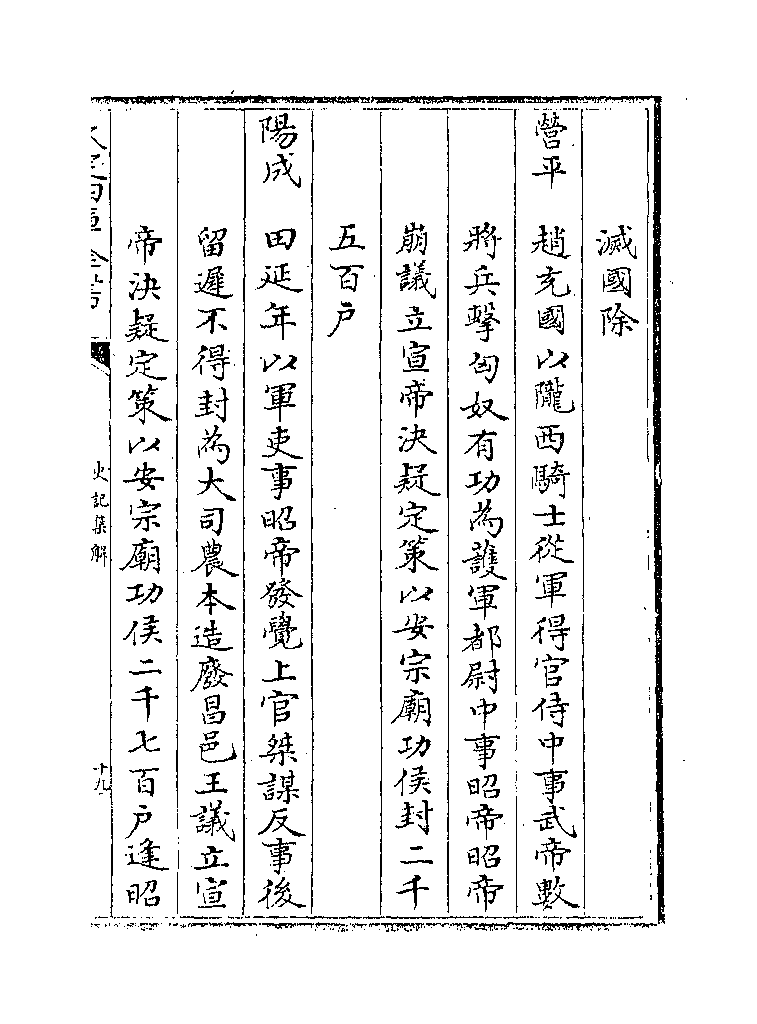 滅國除
營平　趙充國以隴西騎士從軍得官侍中事武帝數
將兵擊匈奴有功為護軍都尉中事昭帝昭帝
崩議立宣帝決疑定策以安宗廟功侯封二千
五百户
陽成　田延年以軍吏事昭帝發覺上官桀謀反事後
留遲不得封為大司農本造廢昌邑王議立宣
帝決疑定策以安宗廟功侯二千七百户逢昭
史記集解
十九